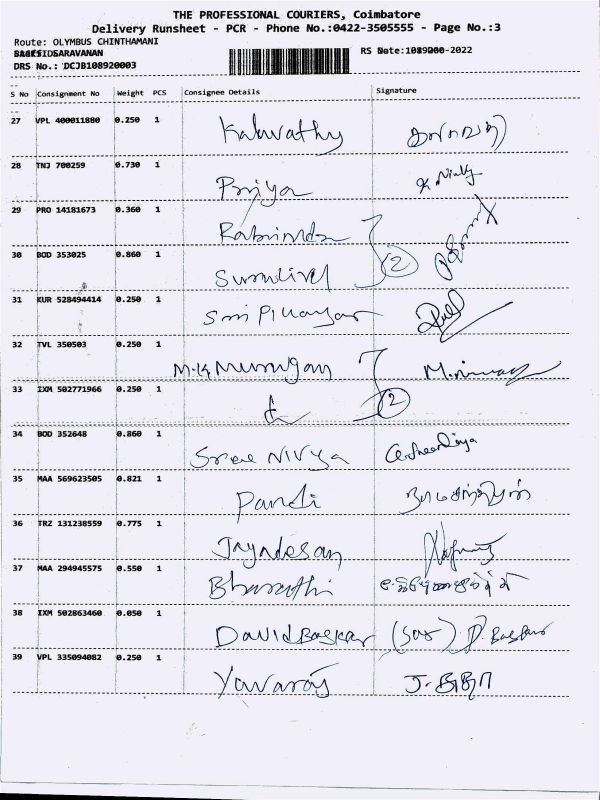 THE PROFESSIONAL COURIERS, Coimbatore
Delivery Runsheet - PCR - Phone No.:0422-3505555 - Page No.:3
Route: OLYMBUS CHINTHAMANI
SARAVANAN RS Date: -2022
DRS No.: DCJB108920003
S No Consignment No Weight PCS Consignee Details Signature
27 VPL 400011880 0.250 1 Kalavathy
28 TNJ 700259 0.730 1 Priya
29 PRO 14181673 0.360 1
30 BOD 353025 0.860 1 2
31 KUR 528494414 0.250 1 Sri Pillayar
32 TVL 350503 0.250 1 M.K Murugan
33 IXM 502771966 0.250 1 2
34 BOD 352648 0.860 1 Sree Nivya
35 MAA 569623505 0.821 1 Pandi
36 TRZ 131238559 0.775 1 Jayadesan
37 MAA 294945575 0.550 1 Bharathi
38 IXM 502863460 0.050 1 David Baskar D. Baskar
39 VPL 335094082 0.250 1 Yuvaraj